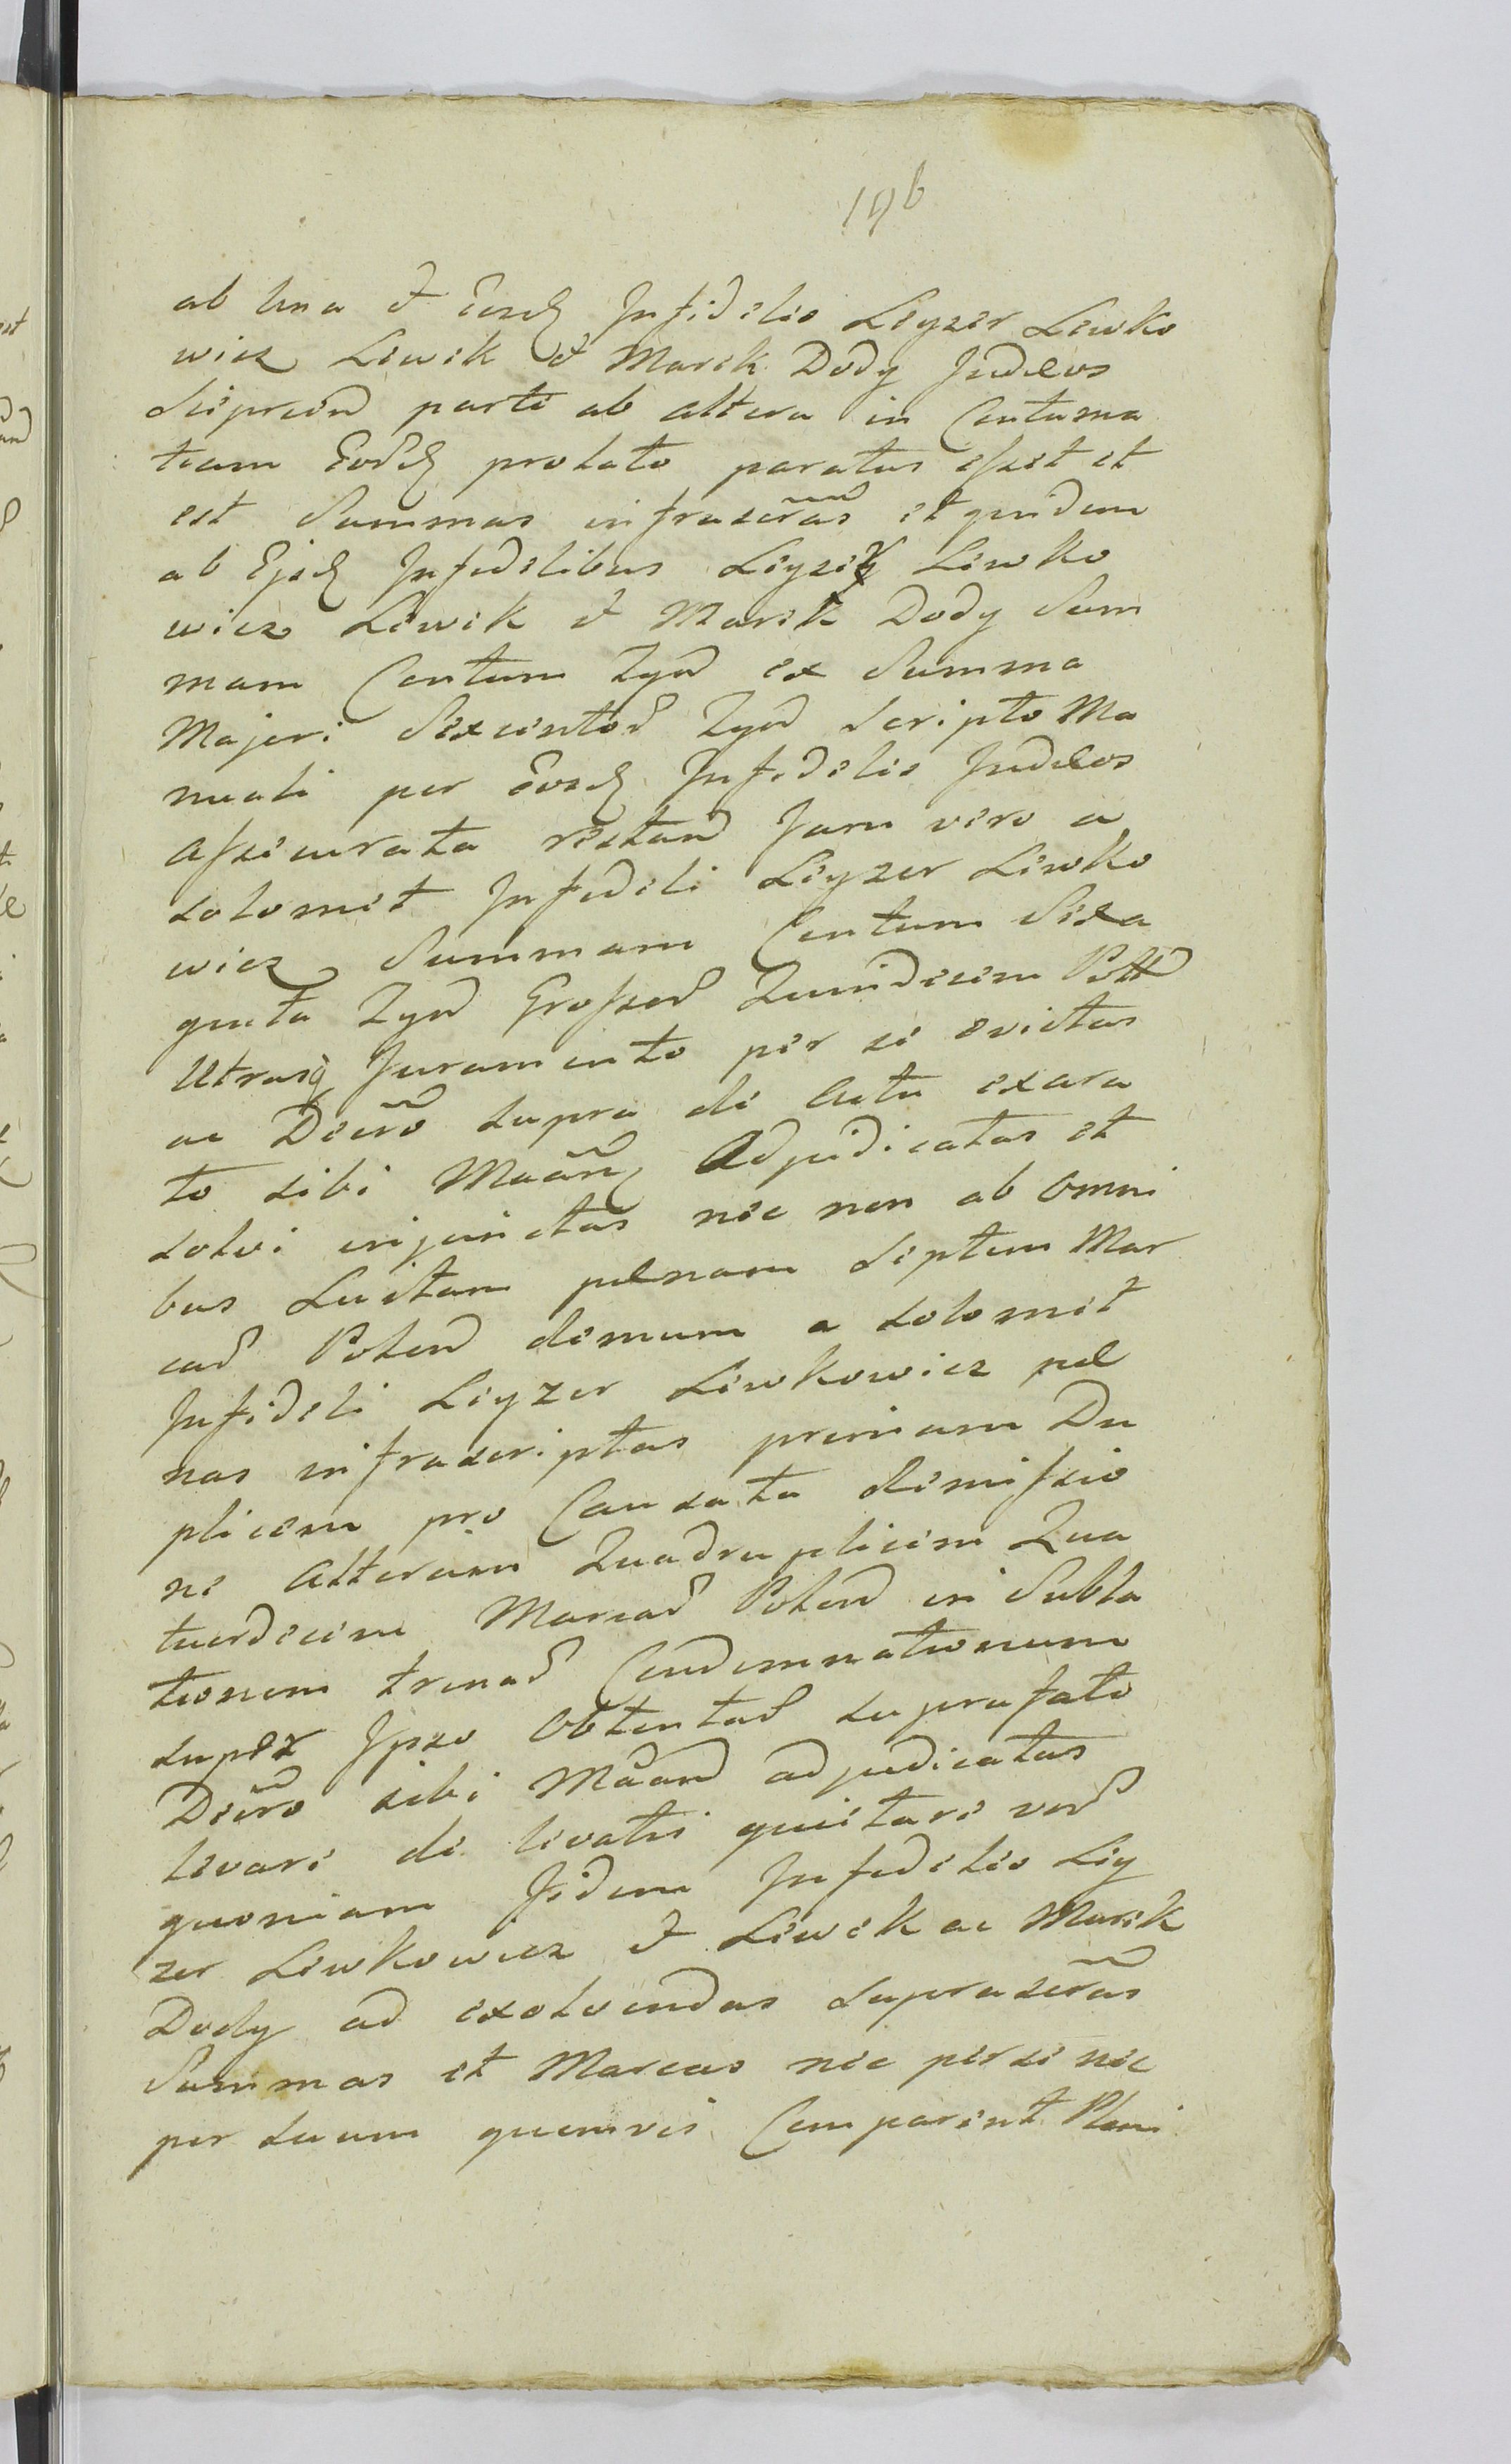 196
ab Una et Eosdq Infideles Leyzer Lewko
wicz Lewek et Marek Dody Judæos
Suprem parte ab altera in Contuma
tiam Eordq prolato paratus eszet et
est Summas infrascr̃as et quidem
ab Ejsdq Infidelibus Leyzer Lewko
wicz Lewek et Marek Dody Sum
mam Centum Złł ex Summa
Majori Sexcentos Złł Scripto Ma
nuali per Eosdq Infideles Judæos
Aszecurata restan Jam vero a
solomet Infideli Leyzer Lewko
wicz Summam Centum Sexa
ginta Złł Groszos Quindecem Poll
Utrasq Juramento per se evictas
ac Decr̃o supra de Actu exara
to sibi Adjudicatas et
solvi injunctas nec non ab Omni
bus Luctam pænam septem Mar
cas Polon demum a solomet
Infideli Leyzer Lewkowicz pæ
nas infrascriptas primam Du
plicem pro Causata dimiszio
ne Alteram Quadruplicem Qua
tuordecem Marcas Polon in Subla
tionem trinas Condemnationum
super Ipso Obtentas suprafato
Decr̃o sibi adjudicatas
levare de levatis quietare
quoniam Iidem Infideles Ley
zer Lewkowicz et Lewek ac Marek
Dody ad exolvendas suprascr̃as
Summas et Marcas nec per se nec
per suum quemvis Comparent Pleni